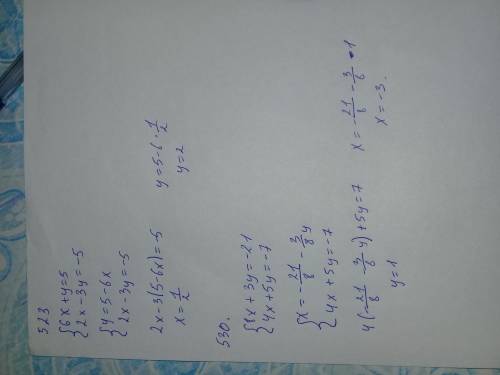 523
{6x + y = 5
2x - 3y = -5
{y = 5 - 6x
2x - 3y = -5
2x - 3(5 - 6x) = -5
x = 1/2
y = 5 - 6 · 1/2
y = 2
530.
{8x + 3y = -21
4x + 5y = -7
{x = -21/8 - 3/8 y
4x + 5y = -7
4(-21/8 - 3/8 y) + 5y = 7
y = 1
x = -21/8 - 3/8 · 1
x = -3.